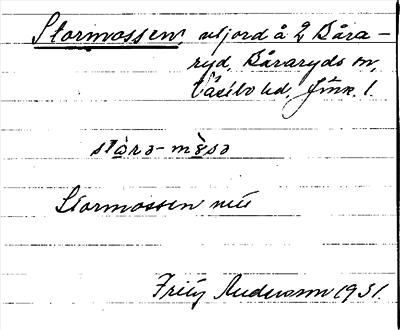 Stormossen, utjord å 2 Båra-
ryd, Båraryds sn,
Västbo hd, Jönk. l.
stȯ̀rə-mɵ̀sə
Stormossen
Fritz Anderson 1931.